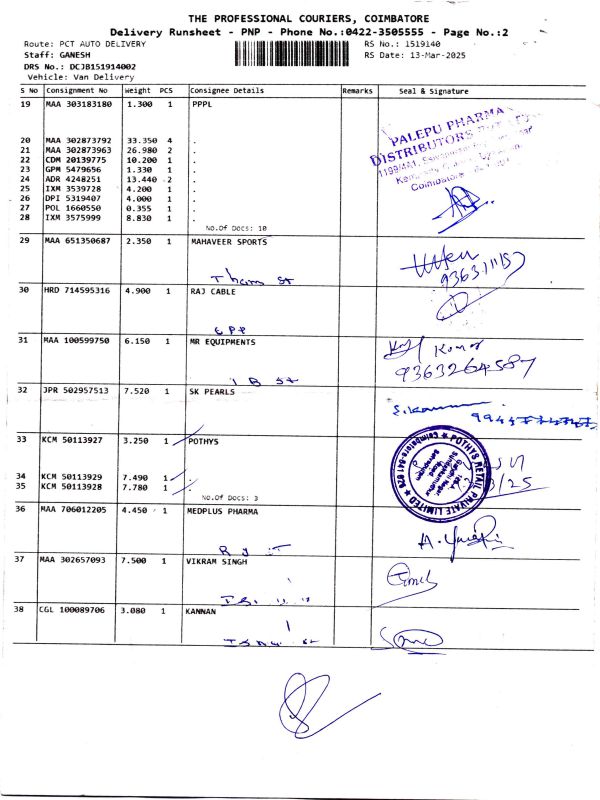 THE PROFESSIONAL COURIERS, COIMBATORE
Delivery Runsheet - PNP - Phone No.:0422-3505555 - Page No.:2
Route: PCT AUTO DELIVERY RS No.: 1519140
Staff: GANESH RS Date: 13-Mar-2025
DRS No.: DCJB151914002
Vehicle: Van Delivery
S No Consignment No Weight PCS Consignee Details Remarks Seal & Signature
19 MAA 303183180 1.300 1 PPPL
PALEPU PHARMA
DISTRIBUTORS
Coimbatore
20 MAA 302873792 33.350 4 .
21 MAA 302873963 26.980 2 .
22 CDM 20139775 10.200 1 .
23 GPM 5479656 1.330 1 .
24 ADR 4248251 13.440 2 .
25 IXM 3539728 4.200 1 .
26 DPI 5319407 4.000 1 .
27 POL 1660550 0.355 1 .
28 IXM 3575999 8.830 1 .
No.Of Docs: 10
29 MAA 651350687 2.350 1 MAHAVEER SPORTS
30 HRD 714595316 4.900 1 RAJ CABLE
31 MAA 100599750 6.150 1 MR EQUIPMENTS
Kumar
9363264587
32 JPR 502957513 7.520 1 SK PEARLS
33 KCM 50113927 3.250 1 POTHYS
POTHYS RETAIL PRIVATE LIMITED * Coimbatore-641 029
34 KCM 50113929 7.490 1 .
35 KCM 50113928 7.780 1 .
No.Of Docs: 3
36 MAA 706012205 4.450 1 MEDPLUS PHARMA
37 MAA 302657093 7.500 1 VIKRAM SINGH
38 CGL 100089706 3.080 1 KANNAN